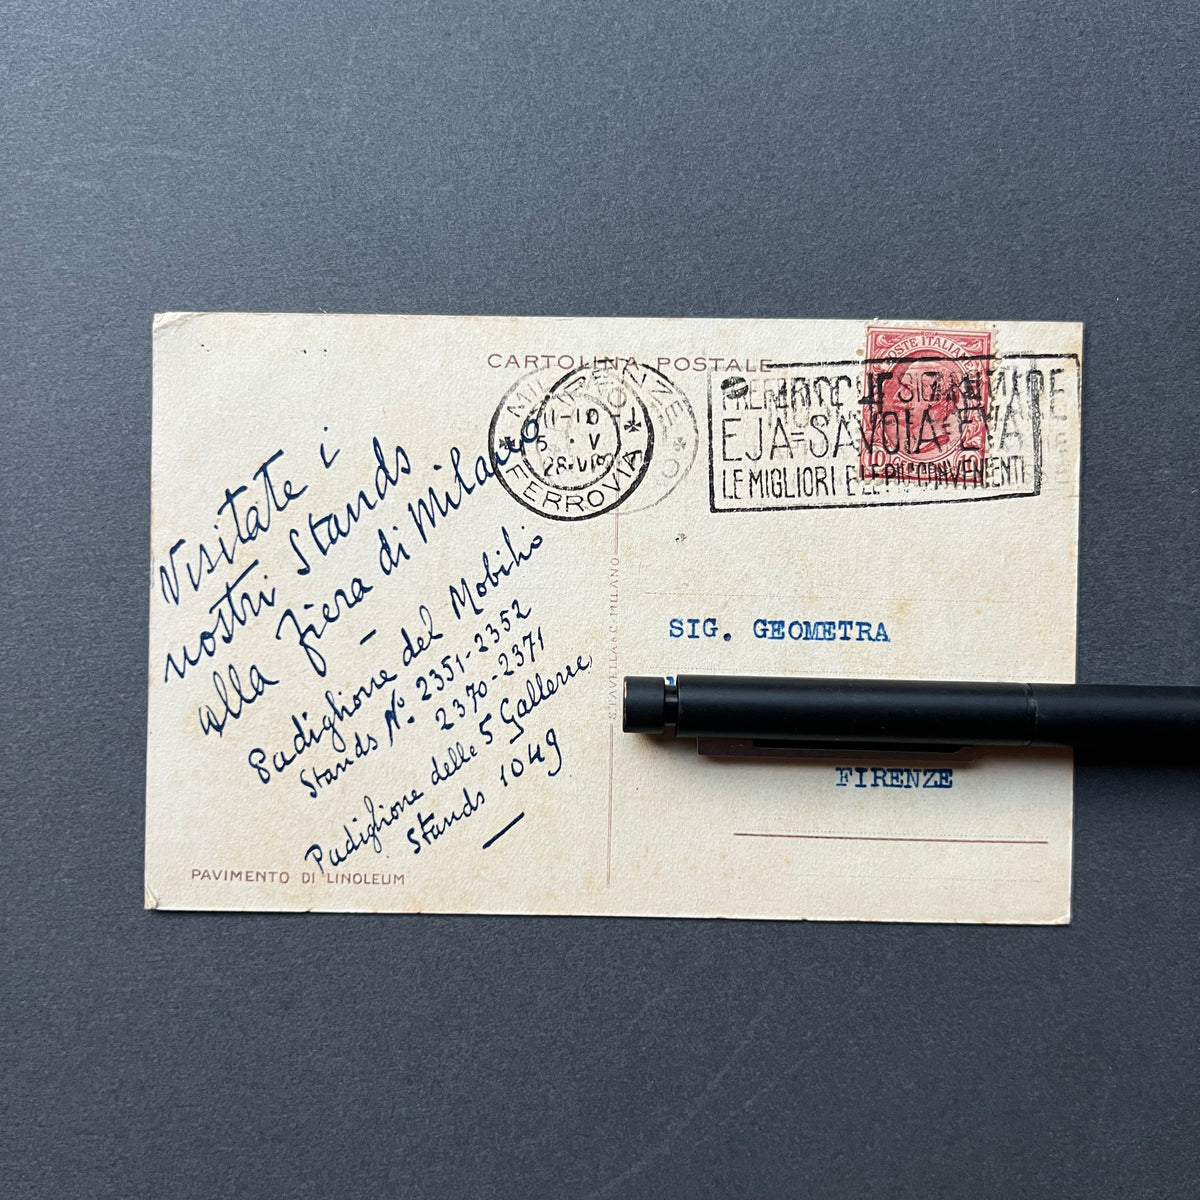 CARTOLINA POSTALE
POSTE ITALIANE
MILANO
11-12
5 · V
28·VI
FERROVIA
FIRENZE
EJA=SAVOIA=EJA
LE MIGLIORI E LE PIÙ CONVENIENTI
10
Visitate i
nostri Stands
alla fiera di Milano
—
Padiglione del Mobilio
Stands No. 2351-2352
2370-2371
Padiglione delle 5 Gallerie
Stands 1049
—
PAVIMENTO DI LINOLEUM
STAVELLA & C. MILANO
SIG. GEOMETRA
FIRENZE